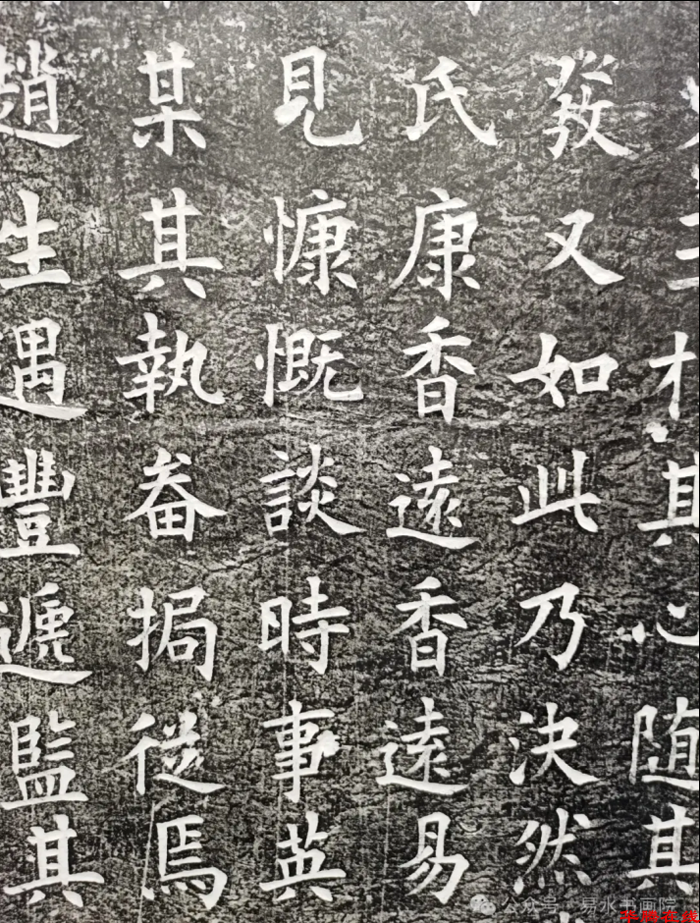 其随其
發又如此乃決然
氏康香遠香遠易
見慷慨談時事英
某其執畚挶從焉
趙生遇豐遞監其
公众号·易水书画院